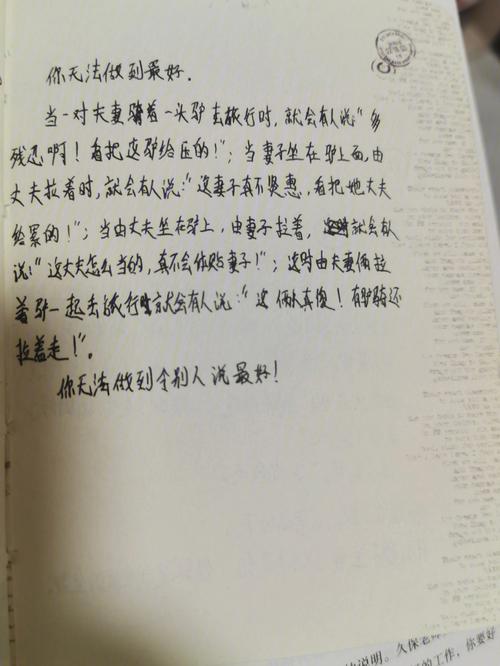 你无法做到最好.
当一对夫妻骑着一头驴去旅行时,就会有人说:"多
残忍啊!看把这驴给压的!";当妻子坐在驴上面,由
丈夫拉着时,就会有人说:"这妻子真不贤惠,看把她丈夫
给累的!";当由丈夫坐在驴上,由妻子拉着,就会有人
说:"这丈夫怎么当的,真不会体贴妻子!";这时由夫妻俩拉
着驴一起去旅行时就会有人说:"这俩人真傻!有驴骑还
拉着走!"。
你无法做到令别人说最好!
说明。久保老师
的工作,你要好